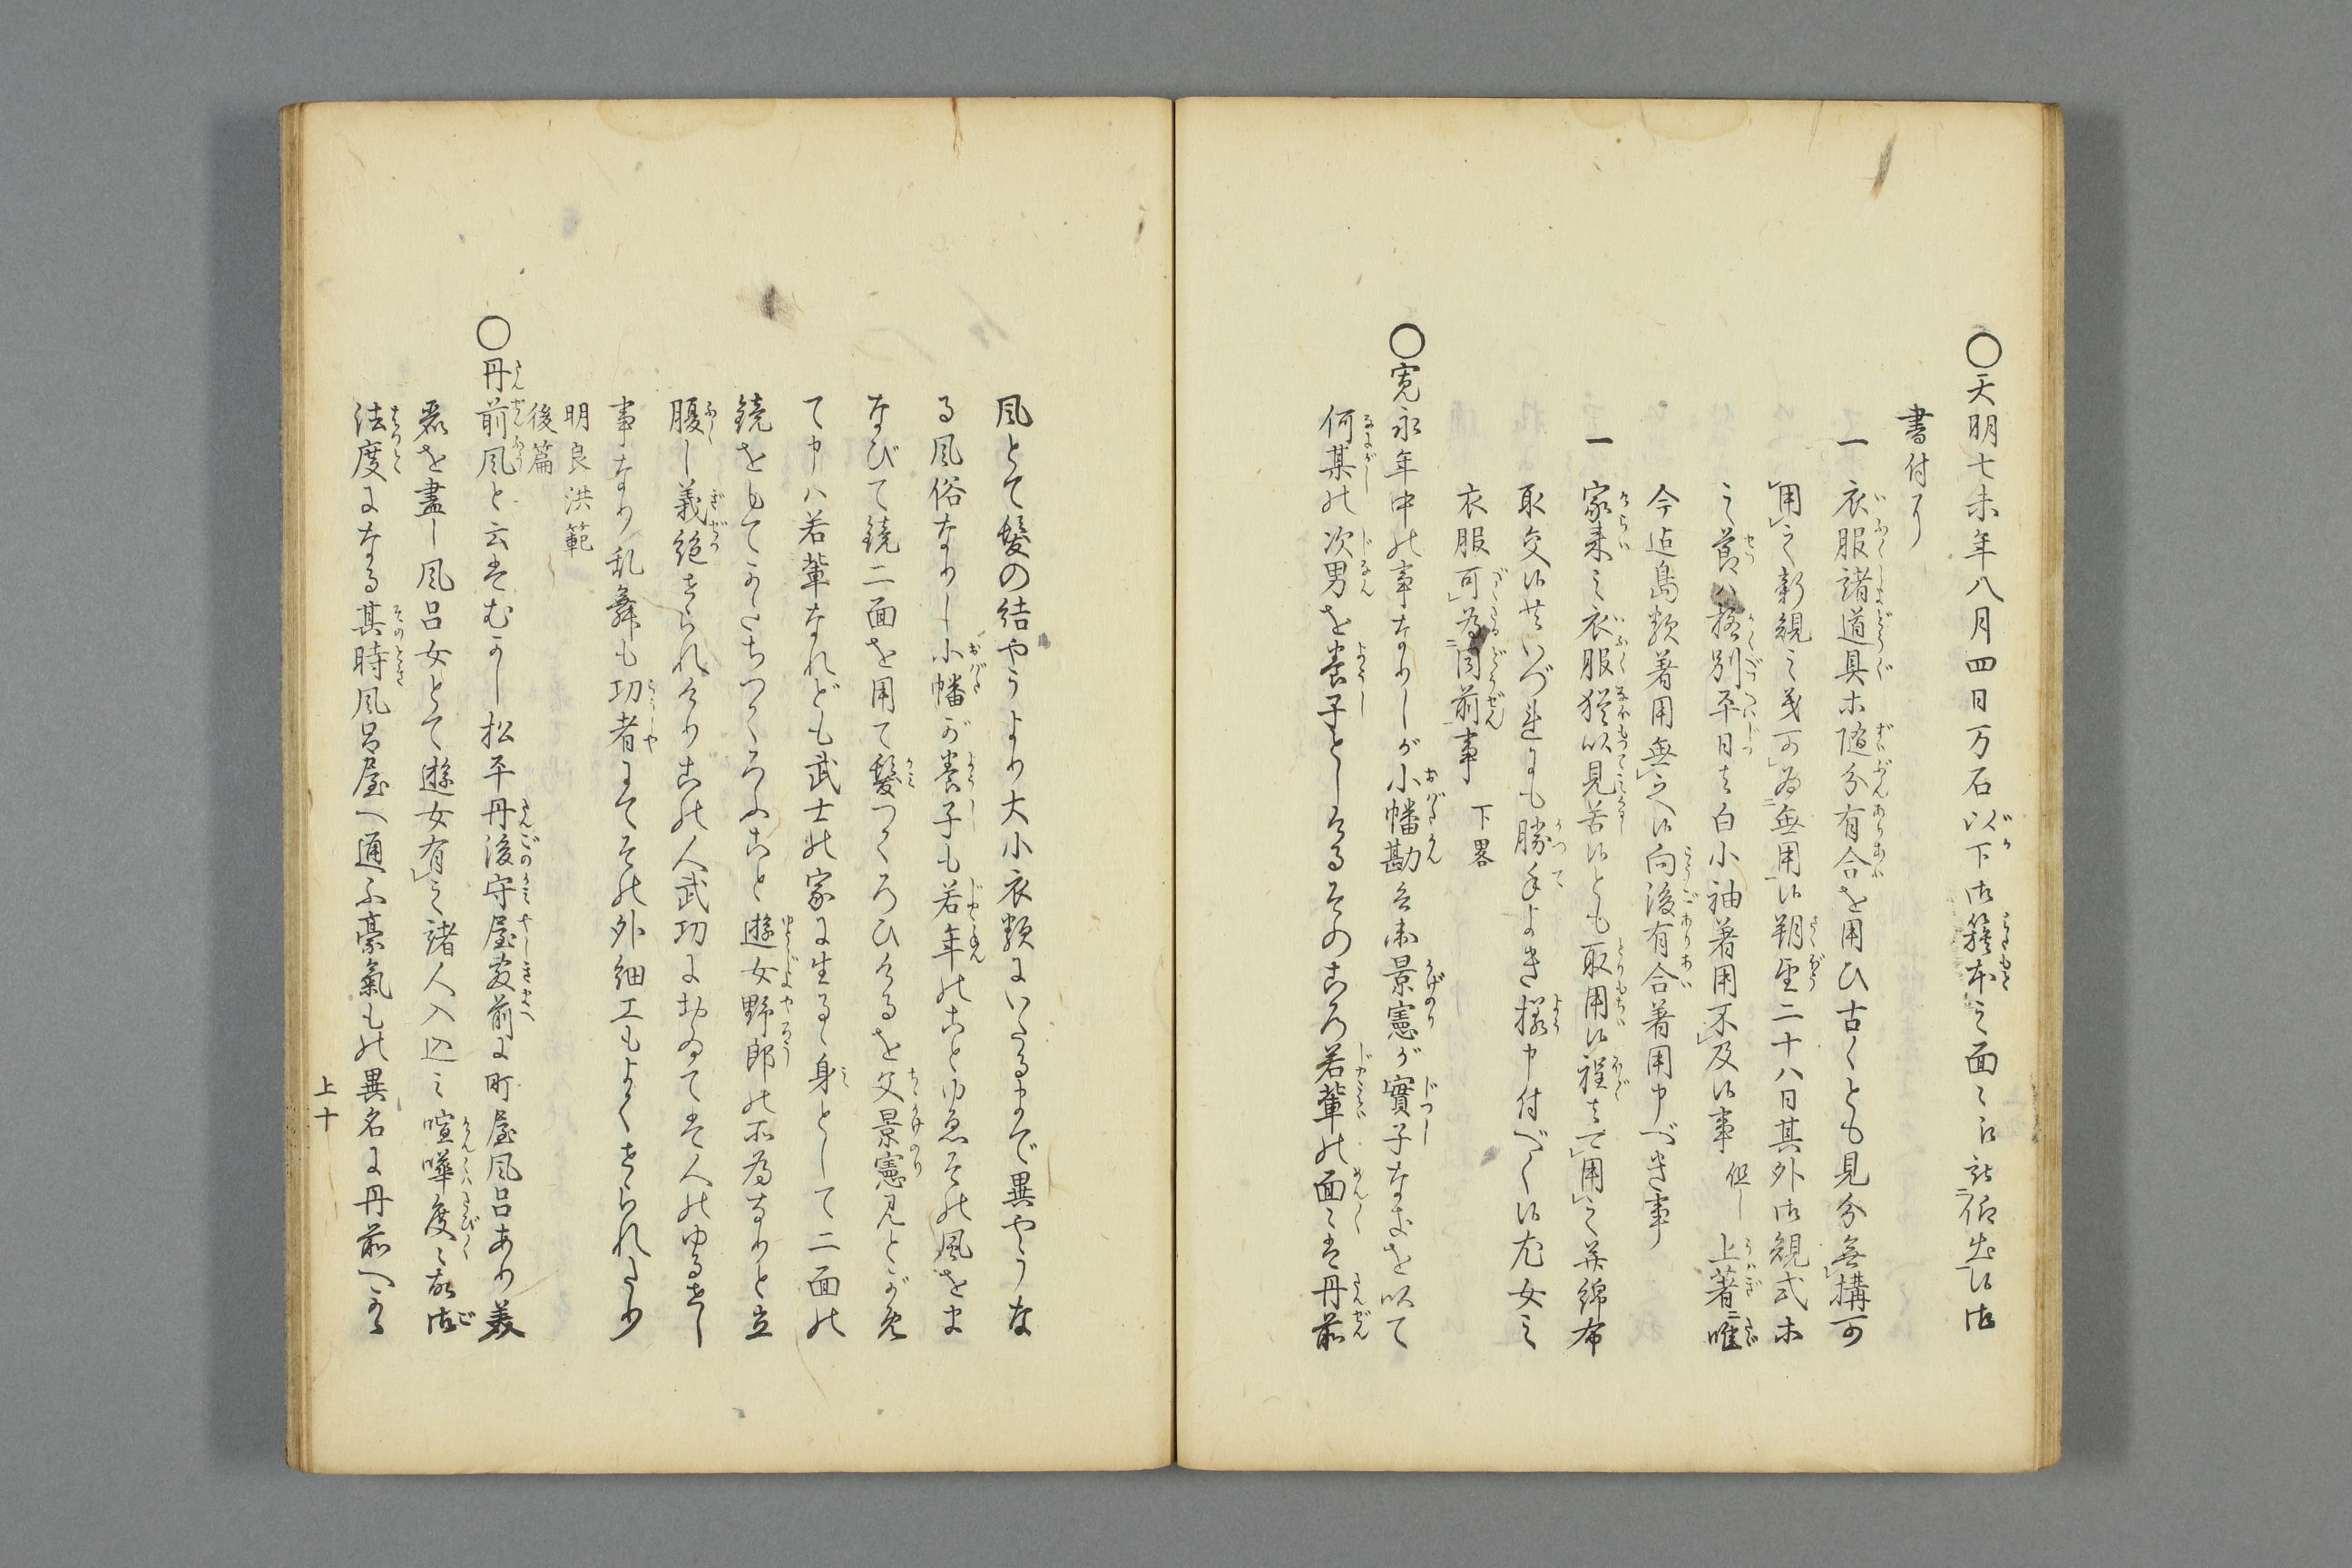 〇天明七未年八月四日万石以下御籏本之面々江被仰出候御
書付ニ
一 衣服諸道具ホ随分有合を用ひ古くとも見分無構可
用之新規之義可為無用候朔望二十八日其外御規式ホ
之節ハ格別平日は白小袖着用不及候事 但し上著唯
今迄島類着用無之候向後有合着用申べき事
一 家来之衣服猶以見苦候とも取用候程は可用之并綿布
取交候共いづれにも勝手よき様申付べく候尤女之
衣服可為同前事 下畧
〇寛永年中の事なりしが小幡勘兵衛景憲が實子なきを以て
何某の次男を養子としけるそのころ若輩の面々は丹前
風とて髮の結やうより大小衣類にいたるまで異やうな
る風俗なりし小幡が養子も若年のことゆゑその風をま
なびて鏡二面を用て髮つくろひけるを父景憲見とがめ
て申ハ若輩なれども武士の家に生るゝ身として二面の
鏡をもてかたちつくろふこと遊女野郎の所為なりと立
腹し義絶せられけりこの人武功におゐては人のゆるせし
事なり乱舞も功者にてその外細工もよくせられたり
明良洪範
後篇
〇丹前風と云はむかし松平丹後守屋敷前に町屋風呂あり美
麗を盡し風呂女とて遊女有之諸人入込之喧嘩度々故御
法度になる其時風呂屋へ通ふ豪氣もの異名に丹前へかゝ
上十